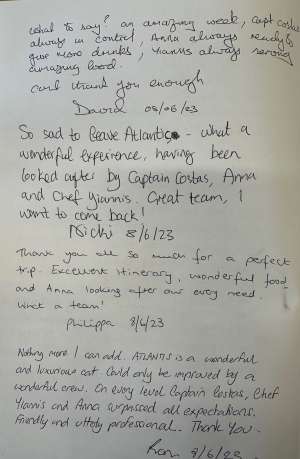 what to say? an amazing week, Capt Costas
always in control, Anna always ready to
give more drinks, Yiannis always serving
amazing food.
cant thank you enough
David 08/06/23
So sad to leave Atlantis - what a
wonderful experience, having been
looked after by Captain Costas, Anna
and Chef Yiannis. Great team, I
want to come back!
Nicki 8/6/23
Thank you all so much for a perfect
trip. Excellent itinerary, wonderful food
and Anna looking after our every need.
What a team!
Philippa 8/6/23
Nothing more I can add. ATLANTIS is a wonderful
and luxurious cat. Could only be improved by a
wonderful crew. On every level Captain Costas, Chef
Yiannis and Anna surpassed all expectations.
Friendly and uttely professional. Thank You.
8/6/23